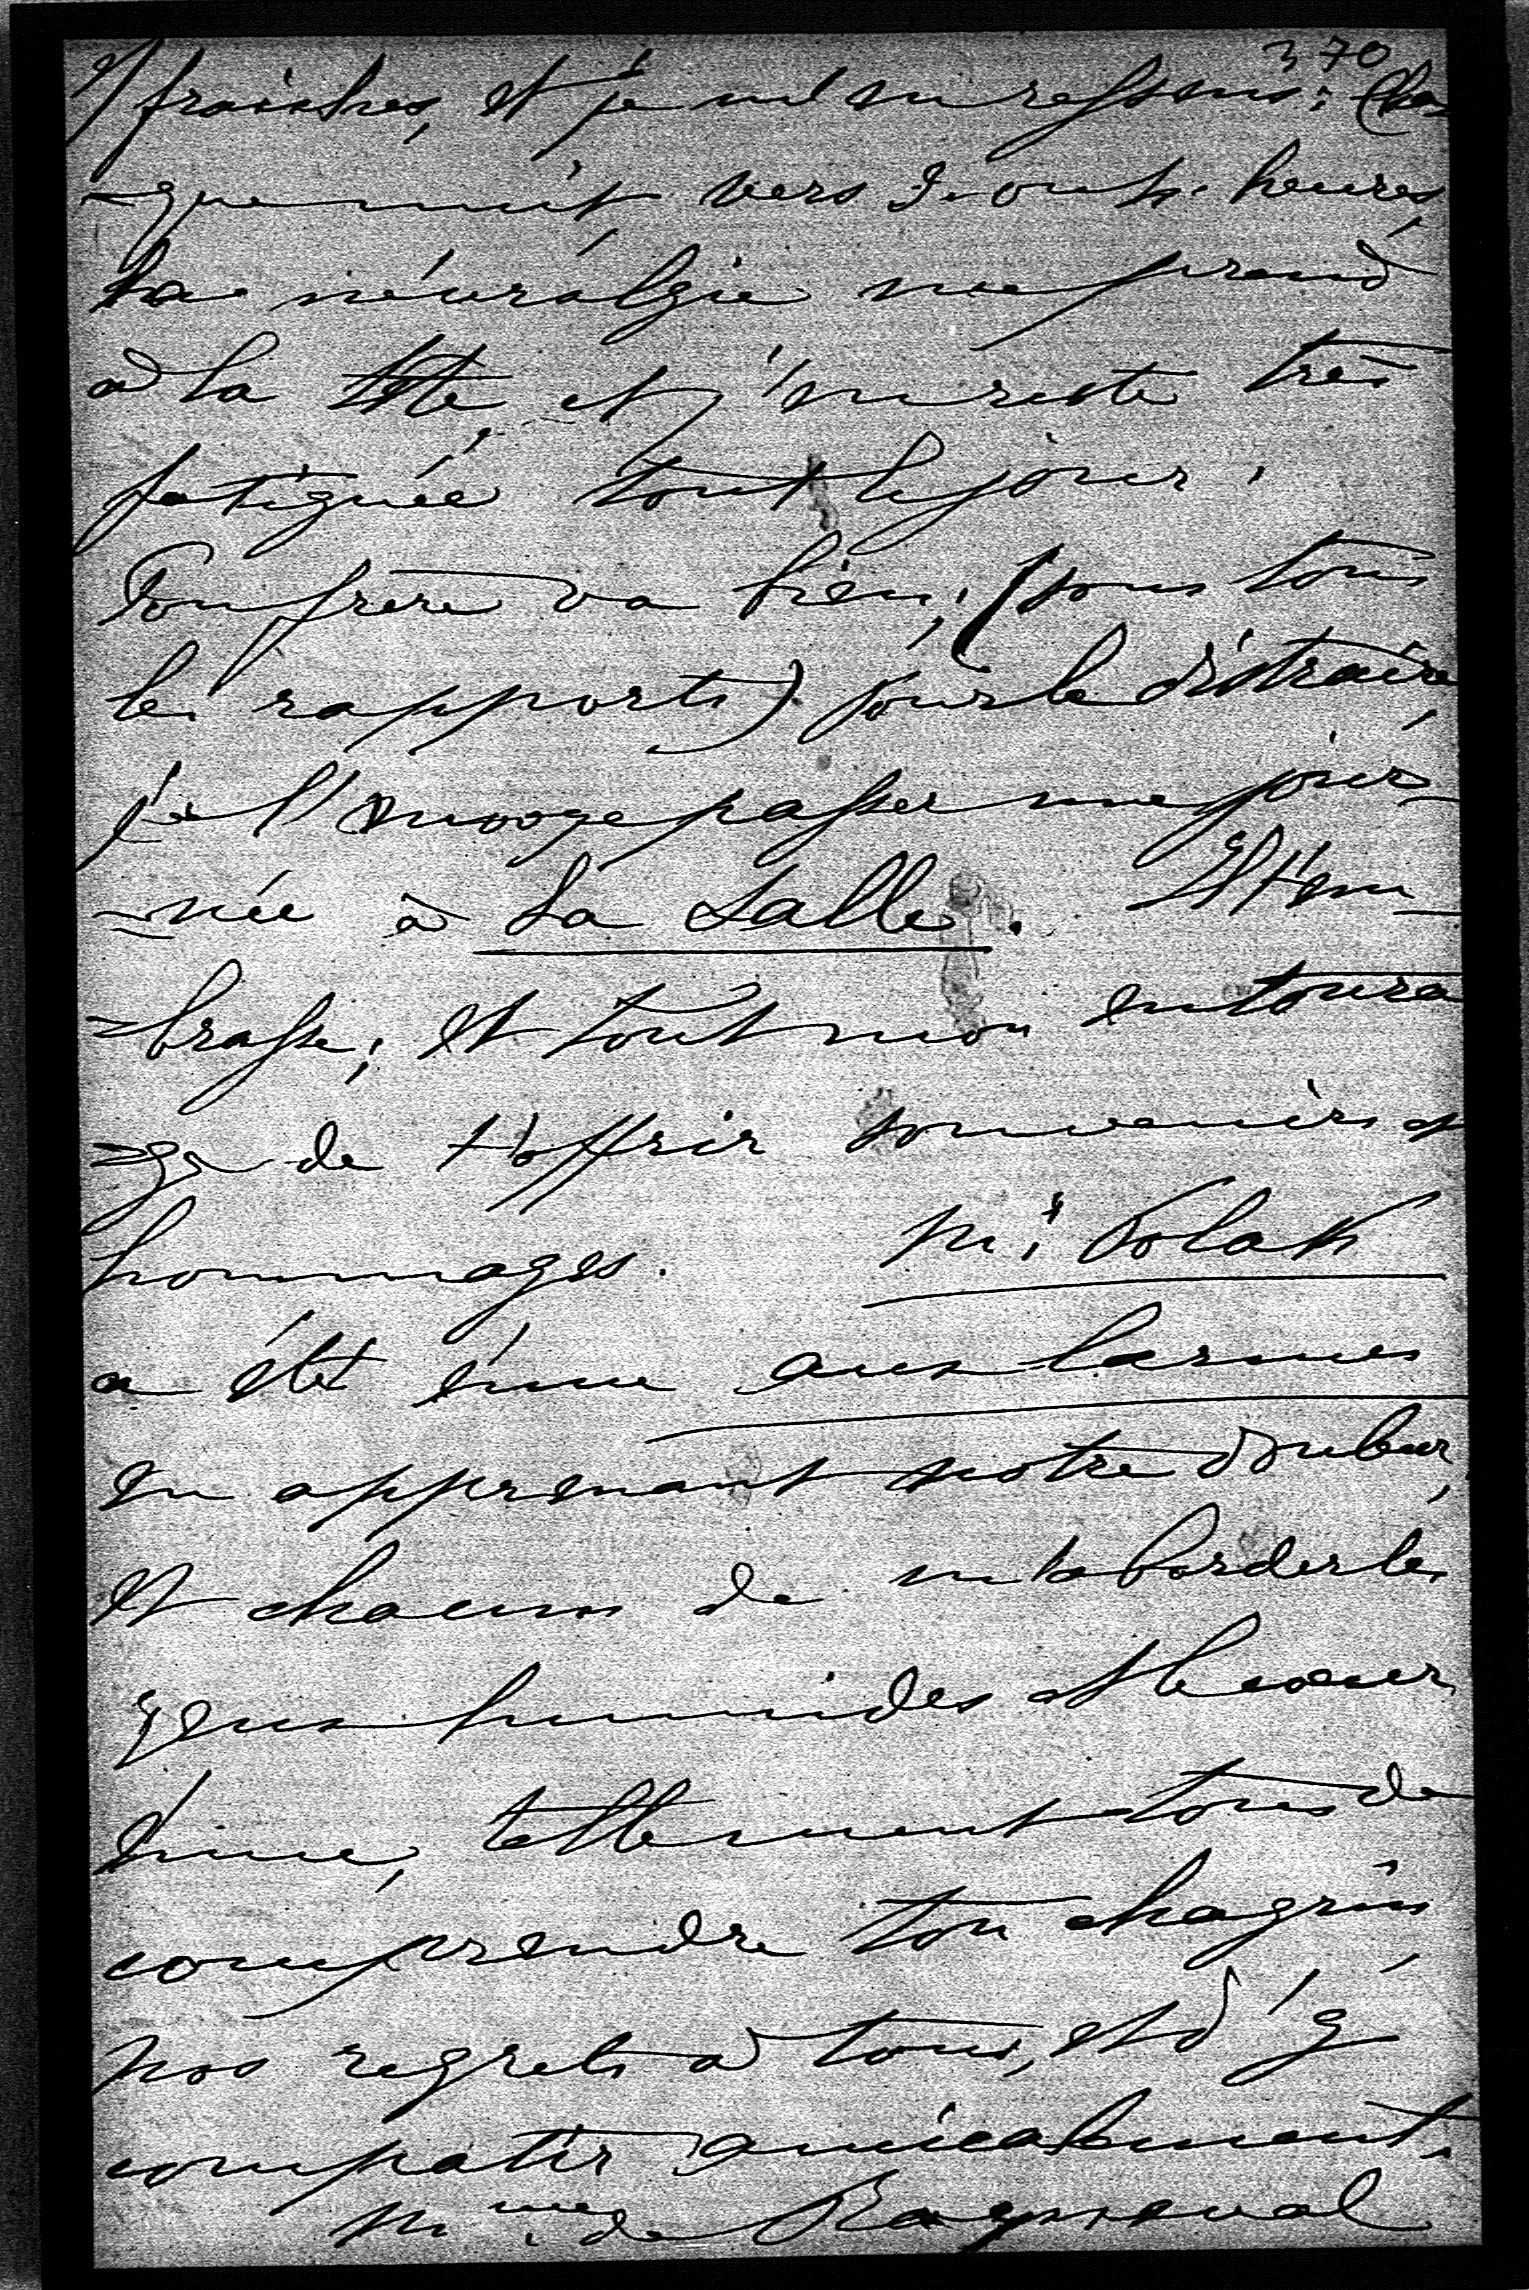 370
fraiches, et je m'en ressens: Cha
-que nuit vers heures,
la névralgie me prend
à la tête, et j'en reste très
fatiguée tout le jour.
Ton frère va bien; (sous tous
les rapports) pour le distraire,
je l'envoye passer une jour-
-née à La Salle. Il t'em-
-brasse; et tout mon entoura
-ge de t'offrir souvenirs et
hommages. Mr Polak
a été émue aux larmes
en apprenant notre douleur,
et chacun de m'aborder les
yeux humides et le cœur
émue, tellement tous de
comprendre ton chagrin,
nos regrets à tous, et d'y
compatir amicalement.
Mme de Raynneval